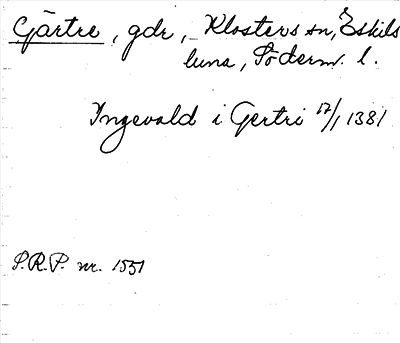 Gärtre, gdr, Klosters sn, Eskils
tuna, Söderm. l.
Ingevald i Gertri 17/1 1381
S.R.P. nr. 1551